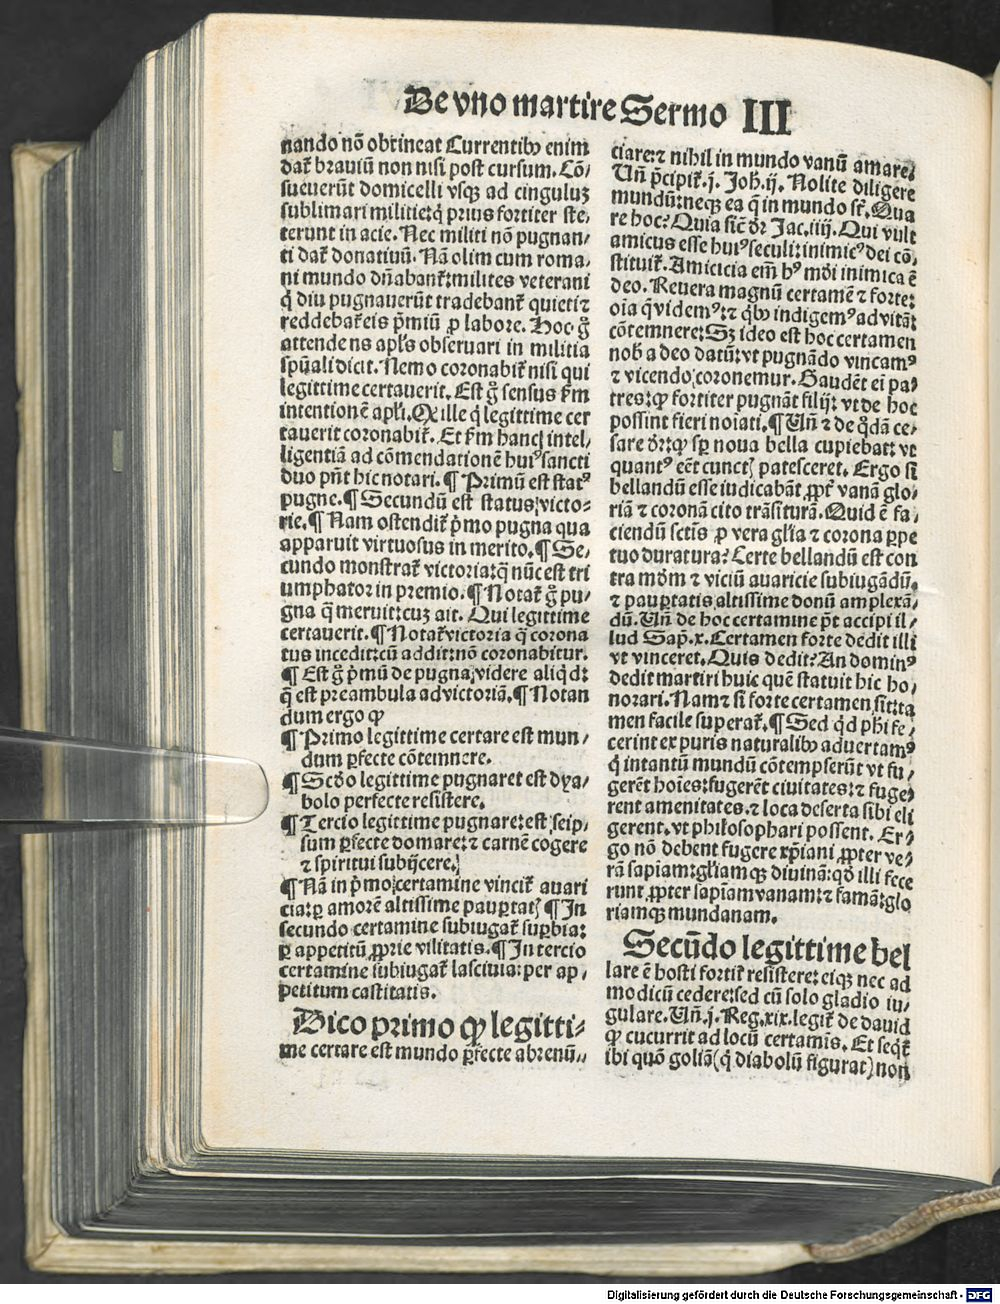 De vno martire Sermo III
nando nõ obtineat Currentibꝰ enim
dat᷑ brauiũ non nisi post cursum. Cõ⸗
sueuerũt domicelli vsqꝫ ad cinguluꝫ
sublimari militie:q̇ prius fortiter ste⸗
terunt in acie. Nec militi nõ pugnan⸗
ti dat᷑ donatiuũ. Nã olim cum roma⸗
ni mundo dñabant᷑:milites veterani
q̇ diu pugnauerũt tradebant᷑ quieti ⁊
reddebat᷑ eis p̃miũ ꝓ labore. Hoc g̊
attendens apl̃s obseruari in militia
spũali dicit. Nemo coronabit᷑ nisi qui
legittime certauerit. Est g̊ sensus ẜm
intentionẽ apl̃i. Ꝙ ille q̇ legittime cer
tauerit coronabit᷑. Et ẜm hanc intel⸗
ligentiã ad cõmendationẽ huiꝰ sancti
duo pñt hic notari. ¶ Primũ est statꝰ
pugne. ¶ Secundũ est status victo⸗
rie. ¶ Nam ostendit᷑ p̃mo pugna qua
apparuit virtuosus in merito. ¶ Se⸗
cundo monstrat᷑ victoria:q̃ nũc est tri
umphator in premio. ¶ Notat᷑ g̊ pu⸗
gna q̃ meruit:cuꝫ ait. Qui legittime
certauerit. ¶ Notat᷑ victoria q̃ corona
tus incedit:cũ addit:nõ coronabitur.
¶ Est g̊ p̃mũ de pugna videre aliq̇d:
q̃ est preambula ad victoriã. ¶ Notan
dum ergo ꝙ
¶ Primo legittime certare est mun⸗
dum ꝑfecte cõtemnere.
¶ Scḋo legittime pugnaret est dya⸗
bolo perfecte resistere.
¶ Tercio legittime pugnare:est seip⸗
sum ꝑfecte domare:⁊ carnẽ cogere
⁊ spiritui subijcere.
¶ Nã in p̃mo certamine vincit᷑ auari
cia:ꝑ amorẽ altissime pauꝑtatꝭ ¶ In
secundo certamine subiugat᷑ suꝑbia:
ꝑ appetitũ ꝓprie vilitatis. ¶ In tercio
certamine subiugat᷑ lasciuia:per ap⸗
petitum castitatis.
Dico primo ꝙ legitti⸗
me certare est mundo ꝑfecte abrenũ⸗
ciare:⁊ nihil in mundo vanũ amare.
Uñ p̃cipit᷑.j. Joh.ij. Nolite diligere
mundũ:neqꝫ ea q̃ in mundo st̃. Qua
re hoc? Quia sic̃ dr̃ Jac.iiij. Qui vult
amicus esse huiꝰ seculi:inimicꝰ dei cõ⸗
stituit᷑. Amicicia em̃ hꝰ mũdi inimica ẽ
deo. Reuera magnũ certamẽ ⁊ forte:
oĩa q̃ videmꝰ:⁊ q̇bꝰ indigemꝰ ad vitã:
cõtemnere:Sꝫ ideo est hoc certamen
nob̃ a deo datũ:vt pugnãdo vincamꝰ
⁊ vicendo coronemur. Gaudẽt em̃ pa⸗
tres:ꝙ fortiter pugnãt filij: vt de hoc
possint fieri noĩati. ¶ Uñ ⁊ de q̇dã ce⸗
sare dr̃:ꝙ sꝑ noua bella cupiebat: vt
quantꝰ eẽt cunctꝭ patesceret. Ergo si
bellandũ esse iudicabãt ꝓpt᷑ vanã glo⸗
riã ⁊ coronã cito trãsiturã. Quid ẽ fa⸗
ciendũ sctĩs ꝓ vera gl̃ia ⁊ corona ꝑpe
tuo duratura? Certe bellandũ est con
tra mũdm̃ ⁊ viciũ auaricie subiugãdũ.
⁊ pauꝑtatis altissime donũ amplexã⸗
dũ. Uñ de hoc certamine p̃t accipi il⸗
lud Sap̃.x. Certamen forte dedit illi
vt vinceret. Quis dedit? An dominꝰ
dedit martiri huic quẽ statuit hic ho⸗
norari. Nam ⁊ si forte certamen sit:ta
men facile superat᷑. ¶ Sed q̇d ph̃i fe⸗
cerint ex puris naturalibꝰ aduertamꝰ
q̇ intantũ mundũ cõtempserũt vt fu⸗
gerẽt hoĩes:fugerẽt ciuitates:⁊ fuge⸗
rent amenitates. ⁊ loca deserta sibi eli
gerent. vt philosophari possent. Er⸗
go nõ debent fugere xp̃iani ꝓpter ve⸗
rã sapiam:gl̃iamqꝫ diuinã:qḋ illi fece
runt ꝓpter sapĩam vanam:⁊ famã:glo
riamqꝫ mundanam.
Secũdo legittime bel
lare ẽ hosti fortit᷑ resistere:eiqꝫ nec ad
modicũ cedere:sed cũ solo gladio iu⸗
gulare. Uñ.j. Reg.xix. legit᷑ de dauid
ꝙ cucurrit ad locũ certamĩs. Et seqt᷑
ibi quõ goliã (q̇ diabolũ figurat) non
Digitalisierung gefördert durch die Deutsche Forschungsgemeinschaft - DFG